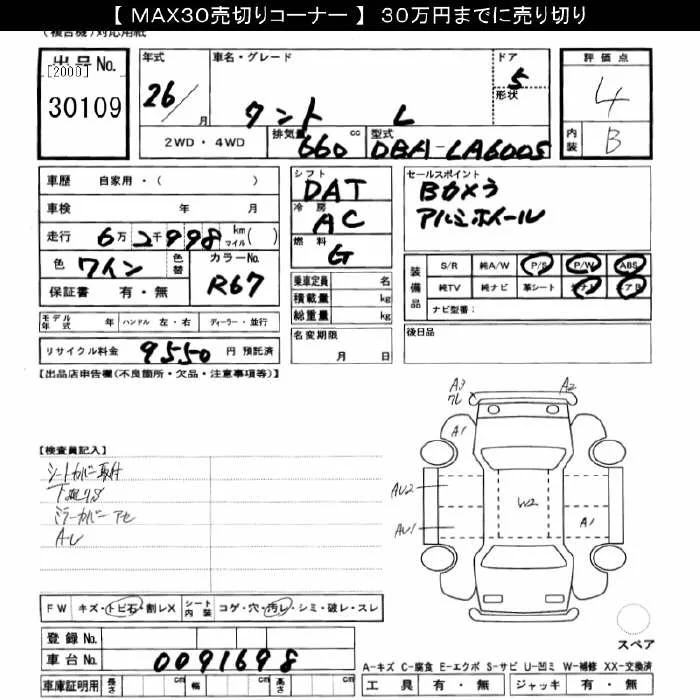 【 MAX30売切りコーナー 】 30万円までに売り切り
(複合機)対応用紙
出品No.
[2000]
30109
年式 車名・グレード ドア 評価点
26/ 月 タント L 5 形状 4
2WD・4WD 排気量 660 cc 型式 DBA-LA600S 内装 B
車歴 自家用・( )
車検 年 月
走行 6万 2千 998 km マイル ( )
色 ワイン 色替 カラーNo. R67
保証書 有・無
シフト DAT
冷房 AC
燃料 G
乗車定員 名
積載量 kg
総重量 kg
セールスポイント
Bカメラ
アルミホイール
装備品 S/R 純A/W P/S P/W ABS
純TV 純ナビ 革シート エアB
ナビ型番:
モデル年式 年 ハンドル 左・右 ディーラー・並行
名変期限 月 日
後日品
リサイクル料金 9550 円 預託済
【出品店申告欄(不良箇所・欠品・注意事項等)】
A3 A2
A1
【検査員記入】
シートカバー取付
下廻りS
ミラーカバー アセ
AU2 W2
AU1 A1
FW キズ・トビ石・割レX シート内装 コゲ・穴・汚レ・シミ・破レ・スレ
登録 No.
車台 No. 0091698
スペア
A-キズ C-腐食 E-エクボ S-サビ U-凹ミ W-補修 XX-交換済
車庫証明用 長さ cm 幅 cm 高さ cm
工具 有・無 ジャッキ 有・無